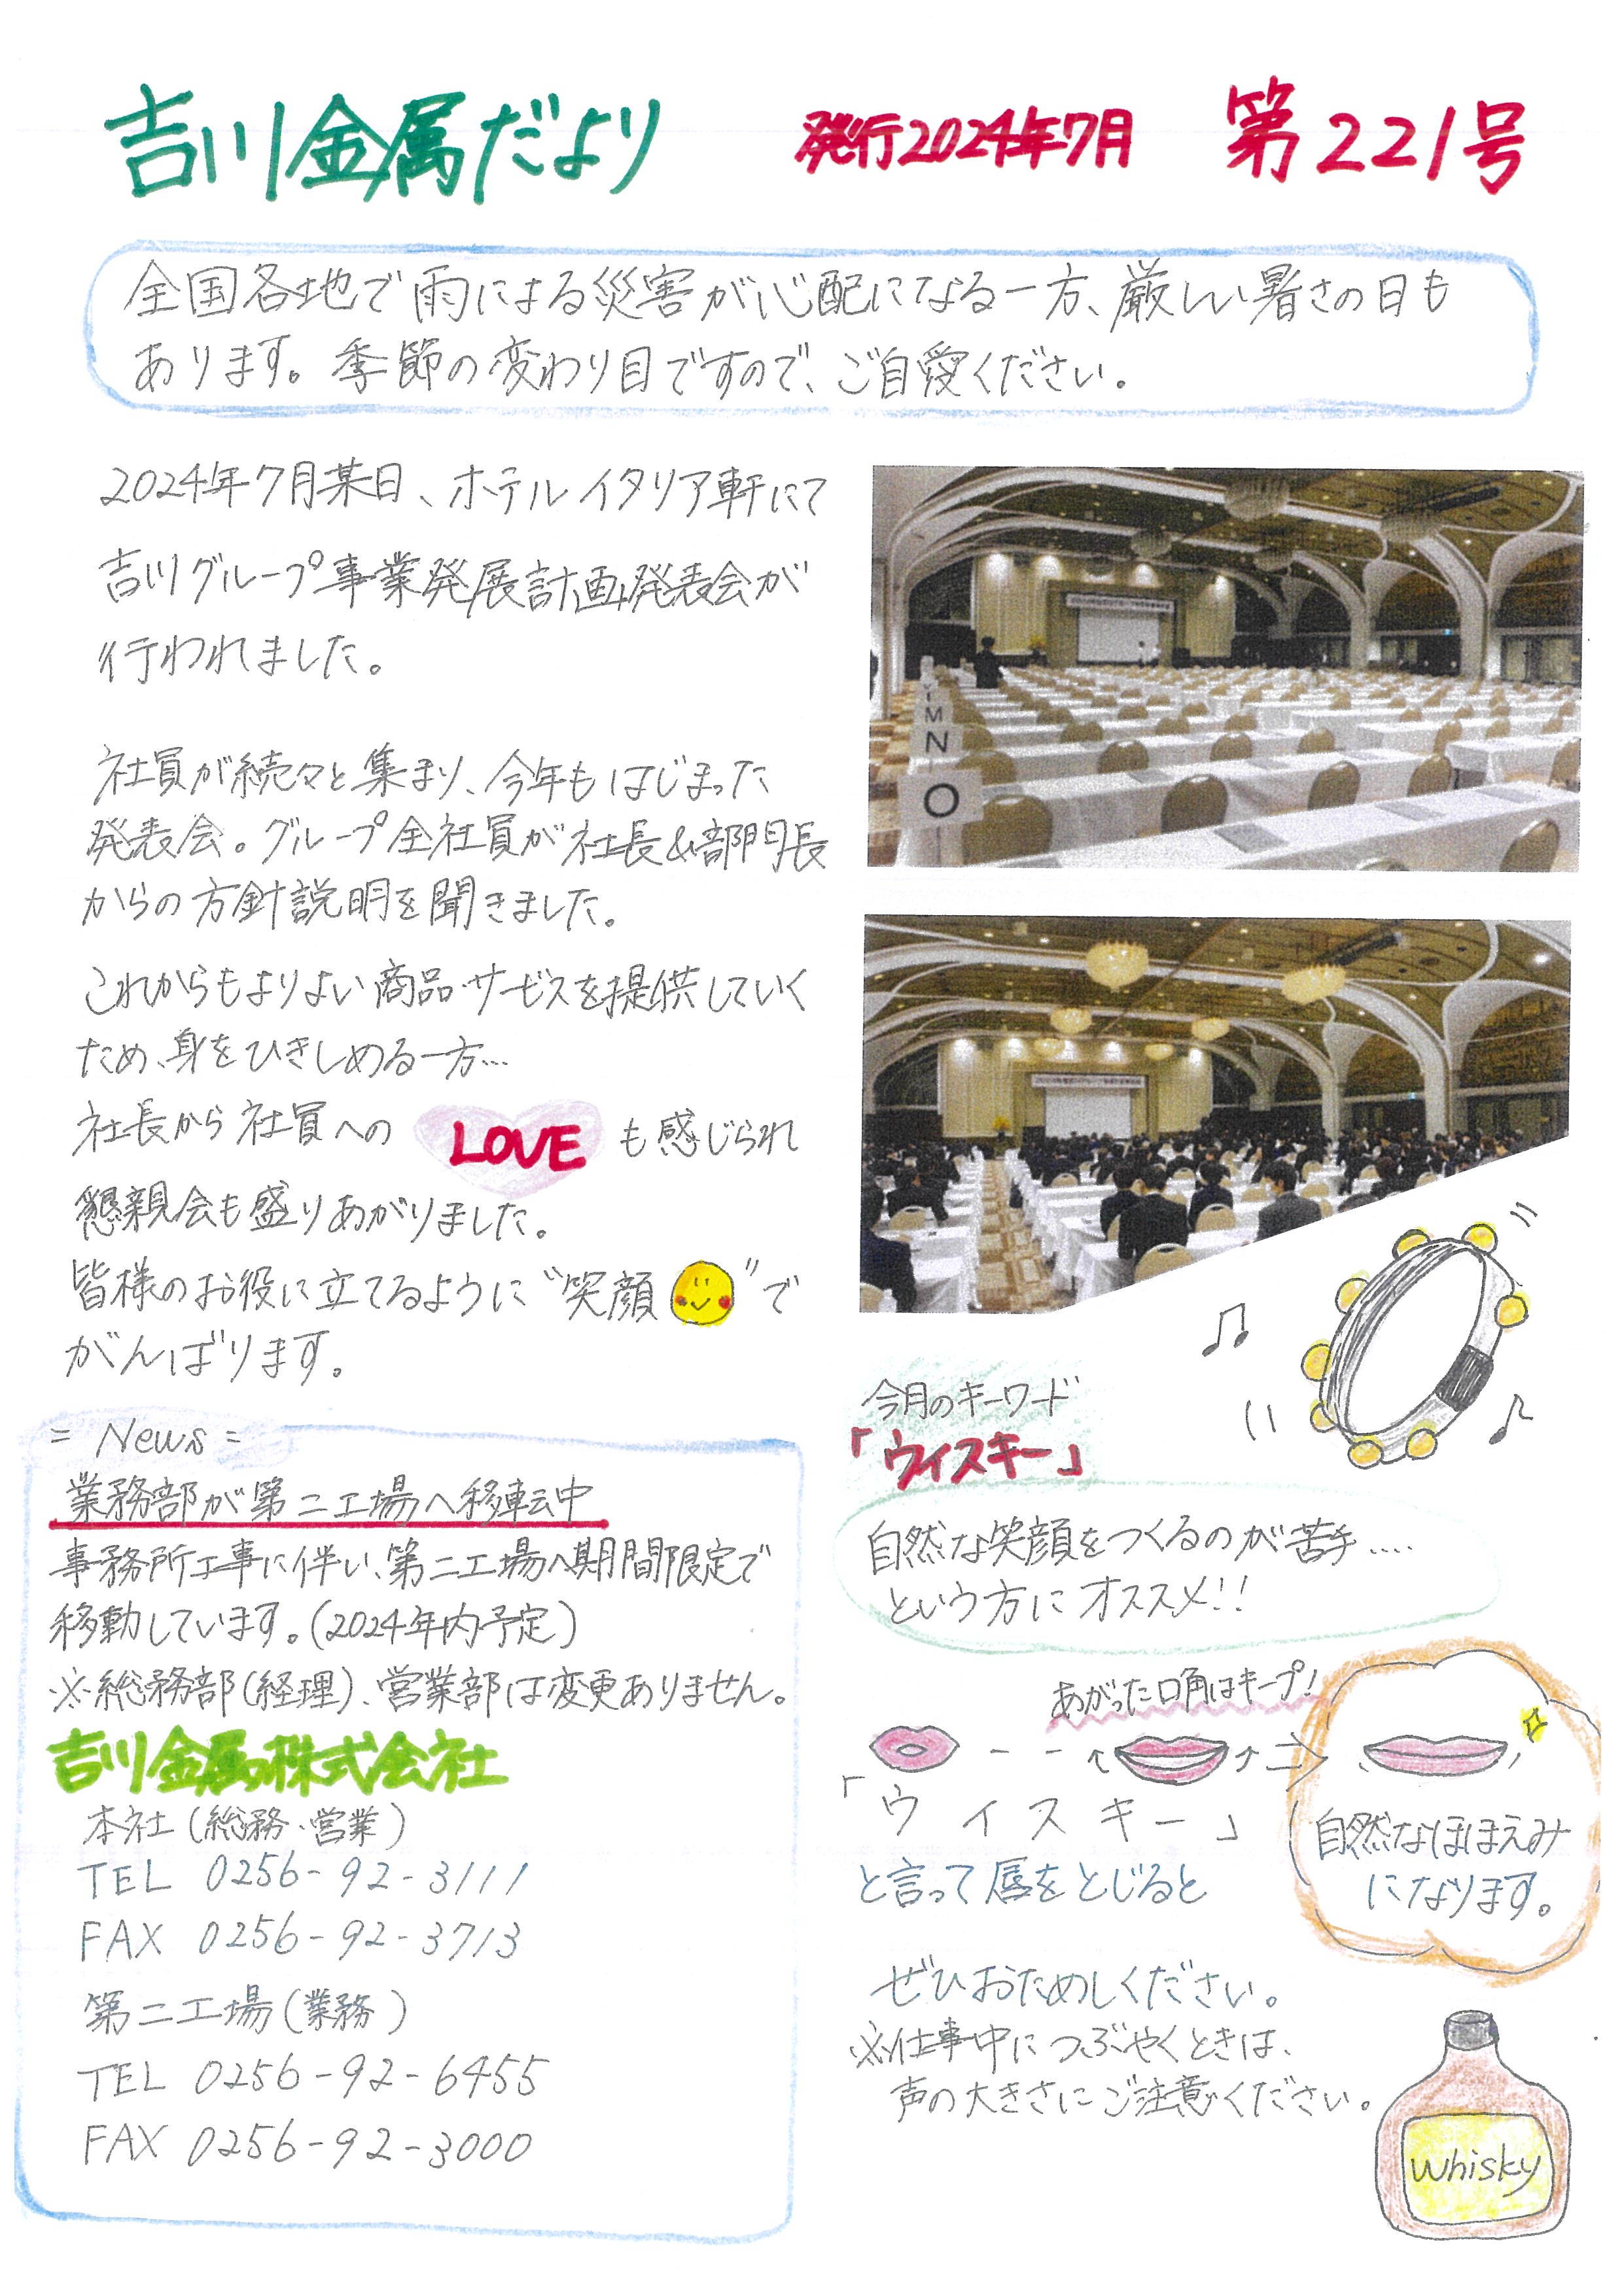 吉川金属だより
発行2024年7月
第221号
全国各地で雨による災害が心配になる一方、厳しい暑さの日も
あります。季節の変わり目ですので、ご自愛ください。
2024年7月某日、ホテルイタリア軒にて
吉川グループ事業発展計画発表会が
行われました。
社員が続々と集まり、今年もはじまった
発表会。グループ全社員が社長&部門長
からの方針説明を聞きました。
これからもよりよい商品・サービスを提供していく
ため、身をひきしめる一方…
社長から社員への LOVE も感じられ
懇親会も盛りあがりました。
皆様のお役に立てるように"笑顔"で
がんばります。
M
N
O
= News =
業務部が第二工場へ移転中
事務所工事に伴い、第二工場へ期間限定で
移動しています。(2024年内予定)
※総務部(経理)、営業部は変更ありません。
吉川金属株式会社
本社(総務・営業)
TEL 0256-92-3111
FAX 0256-92-3713
第二工場(業務)
TEL 0256-92-6455
FAX 0256-92-3000
今月のキーワード
「ウィスキー」
自然な笑顔をつくるのが苦手‥‥
という方にオススメ!!
あがった口角はキープ!
「ウィスキー」
と言って唇をとじると
自然なほほえみ
になります。
ぜひおためしください。
※仕事中につぶやくときは、
声の大きさにご注意ください。
Whisky